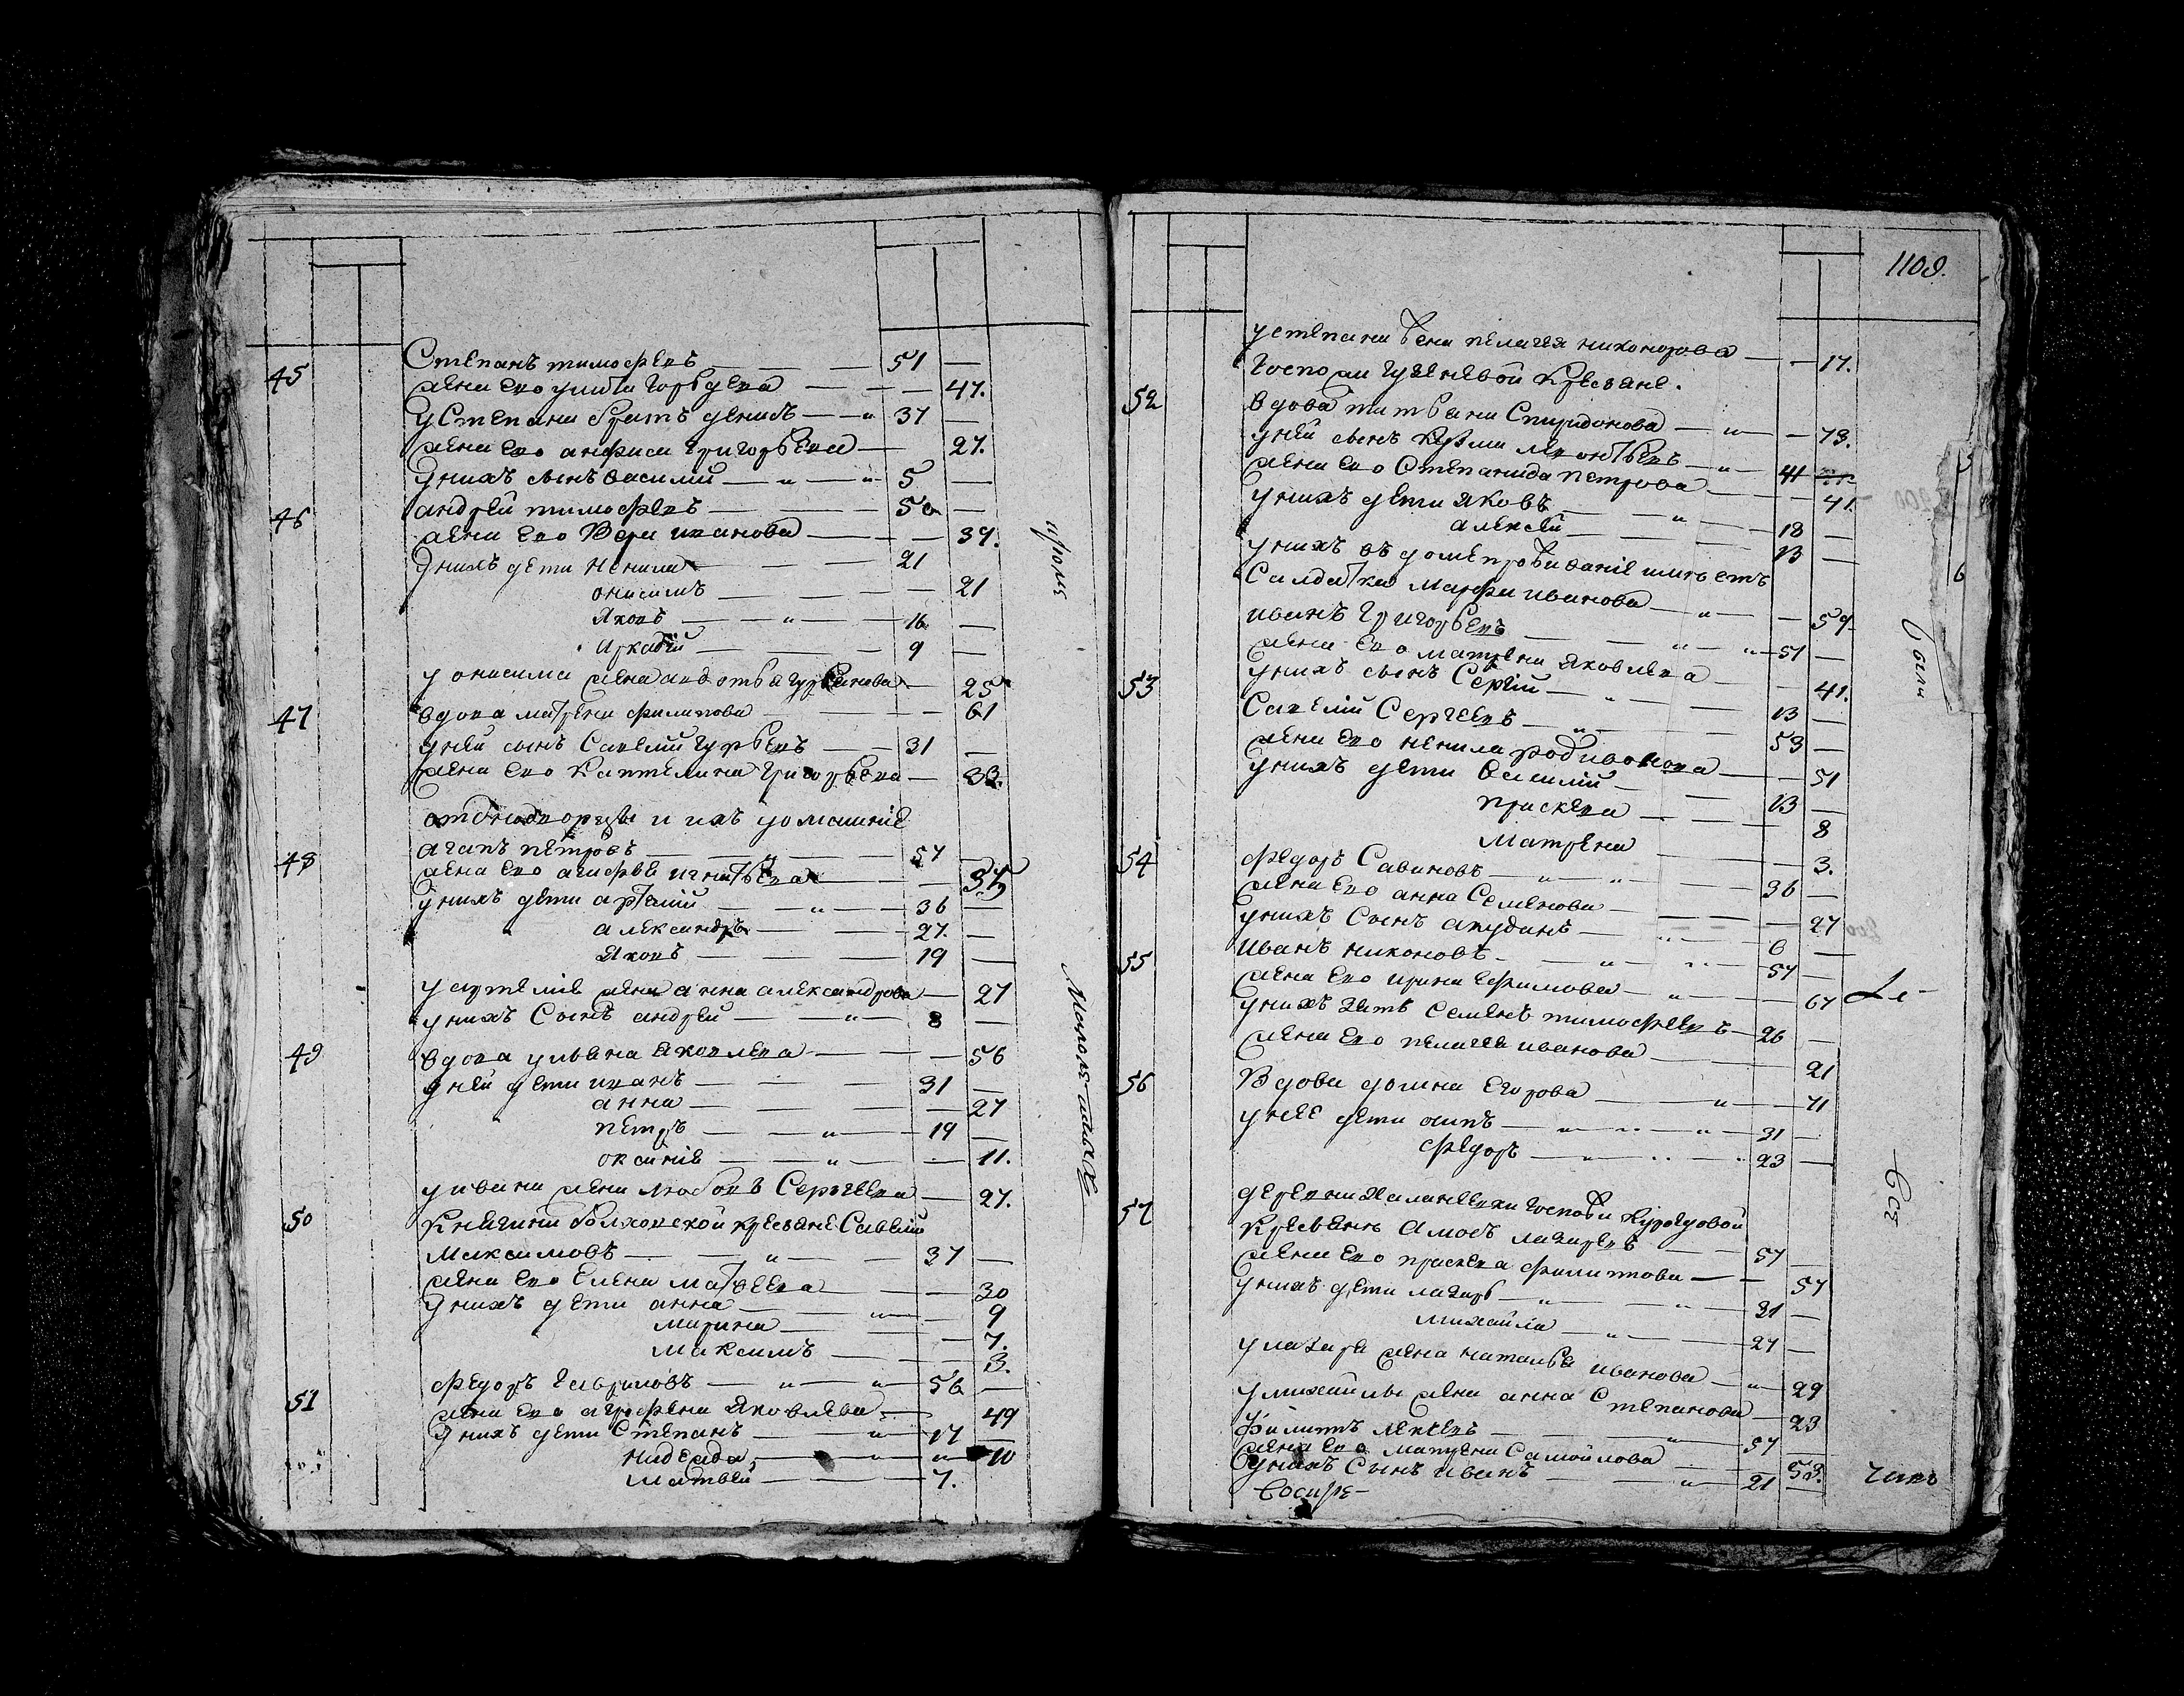 45 Степанъ тимофеевъ — 51 —
жена ево улита Гордеева — — 47.
у Степана братъ денисъ — 37 —
жена ево анфиса Григорьева — 27.
у нихъ сынъ василий — 5 —
46 андрей тимофеевъ — 50 —
жена ево Вера иванова — — 39.
у нихъ дети Ненила — 21
онисимъ — — 21
Яковъ — 16 —
Аркадий — 9 —
у онисима жена авдотья — 25
47 вдова матрена филипова — — 61
у ней сынъ Савелий Гурьевъ — 31 —
жена ево Капителина Григорьева — 33.
однодворцы и ихъ домашние
48 агапъ петровъ — 57 —
жена ево агафья игнатьева —
у нихъ дети артемий — 36 —
александръ — 27. —
Яковъ — 19 —
у артемия жена анна александрова — 27
у нихъ Сынъ андрей — 8 —
49 вдова ульяна Яковлева — — 56
у ней дети иванъ — 31 —
анна — — 27
петръ — 19 —
оксиния — — 11.
у ивана жена любовь Сергеева — 27.
50 Княгини болховской кресьяне Савелий
Максимовъ — 37 —
жена ево Елена матвеева — — 30
у нихъ дети анна — — 9
марина — — 7.
максимъ — — 3.
51 федоръ Гавриловъ — 56 —
жена ево агрофена Яковлева — 49
у нихъ дети Степанъ — 17 —
надежда — 10
матвей — 7.
1109.
у степана жена пелагея никонорова — — 17.
Госпожи кресьяне.
52 вдова татьяна Спиридонова — — 73.
у ней сынъ Кузма леонтьевъ — 41
жена ево Степанида петрова — — 41.
у нихъ дети Яковъ — 18 —
алексей — 13 —
у нихъ въ доме имеетъ
Салдатка марфа иванова — — 59
53 иванъ Григорьевъ — 51 —
жена ево матрена Яковлева — — 41.
у нихъ сынъ Сергий — 13 —
Савелий Сергеевъ — 53 —
жена ево ненила родивонова — — 51
у нихъ дети Василий — 13 —
прасковья — — 8
Матрена — — 3.
54 федоръ Савиновъ — 36 —
жена ево анна Семенова — — 27
у нихъ Сынъ — 6 —
55 Иванъ никоновъ — 57 —
жена ево ирина Ефимова — — 67
у нихъ зять Семенъ тимофеевъ — 26 —
жена ево пелагея иванова — — 21
56 Вдова домна Егорова — — 71
у нее дети осипъ — 31 —
федоръ — 23 —
57 деревни госпожи
Кресьянъ Амосъ лазаревъ — 57 —
жена ево прасковья филипова — — 57
у нихъ дети лазарь — 31 —
михайла — 27 —
у лазаря жена наталья иванова — 29
у михайлы жена анна Степанова — 23
филипъ — 57 —
жена ево матрена Самойлова — 53.
у нихъ Сынъ иванъ — 21 —
были
всъ